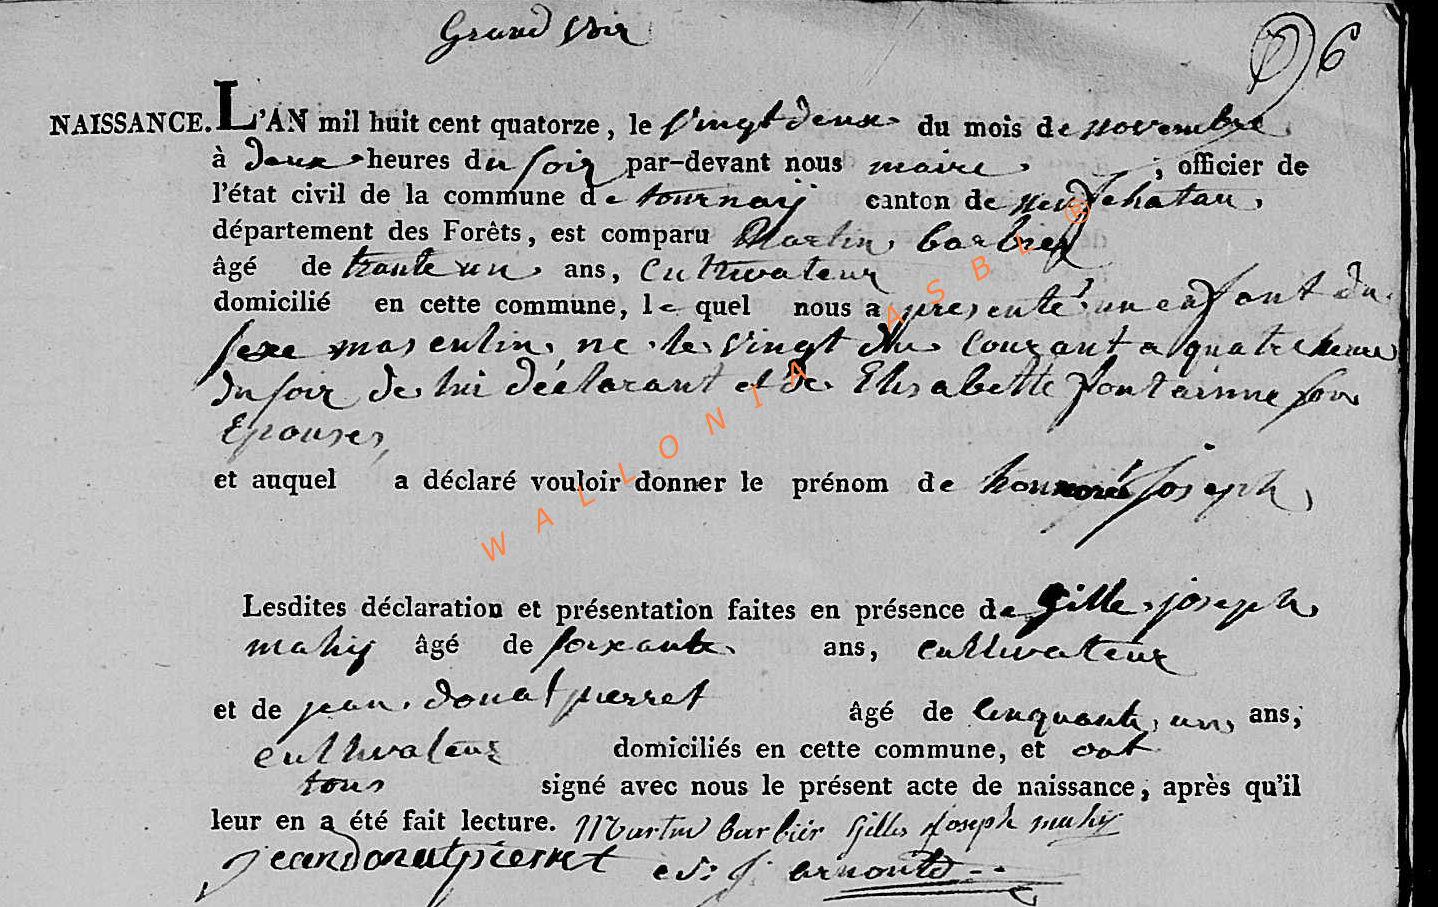 Grand Voir
6
NAISSANCE. L'AN mil huit cent quatorze, le vingt deux du mois de novembre
à deux heures du soir par-devant nous maire ; officier de
l'état civil de la commune de tournay canton de neufchatau,
département des Forêts, est comparu Martin barbier
âgé de trante un ans, cultivateur
domicilié en cette commune, le quel nous a presenté un enfant du
sexe masculin, ne le vingt du Courant a quatre heure
du soir de lui déclarant et de Elisabette fontainne son
Epouses,
et auquel a déclaré vouloir donner le prénom de joseph,
Lesdites déclaration et présentation faites en présence de gille joseph
mahy âgé de soixante ans, cultivateur
et de jean donat pierret âgé de cinquante un, ans,
cultivateur domiciliés en cette commune, et ont
tous signé avec nous le présent acte de naissance, après qu'il
leur en a été fait lecture. Martin barbier Gilles Joseph mahy
jean donat pierret arnould
WALLONIA ASBL ®